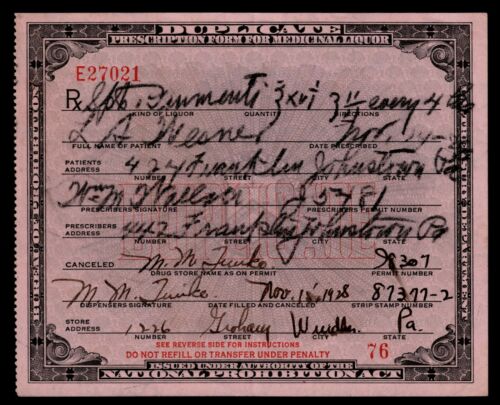 DUPLICATE
PRESCRIPTION FORM FOR MEDICINAL LIQUOR
E27021
Rx Spt. Frumenti ℥xvi ʒii every 4
KIND OF LIQUOR QUANTITY DIRECTIONS
L A Wesner Nov.
FULL NAME OF PATIENT DATE PRESCRIBED
PATIENTS ADDRESS 424 Franklin Johnstown Pa
NUMBER STREET CITY STATE
Wm M Wallace
PRESCRIBERS SIGNATURE PRESCRIBERS PERMIT NUMBER
PRESCRIBERS ADDRESS 442 Franklin Johnstown Pa
NUMBER STREET CITY STATE
CANCELED M. M.
DRUG STORE NAME AS ON PERMIT PERMIT NUMBER
M. M. Nov 15 1928 87377-2
DISPENSERS SIGNATURE DATE FILLED AND CANCELED STRIP STAMP NUMBER
STORE ADDRESS 1226 Graham Pa.
NUMBER STREET CITY STATE
SEE REVERSE SIDE FOR INSTRUCTIONS
DO NOT REFILL OR TRANSFER UNDER PENALTY 76
ISSUED UNDER AUTHORITY OF THE
NATIONAL PROHIBITION ACT
BUREAU OF PROHIBITION